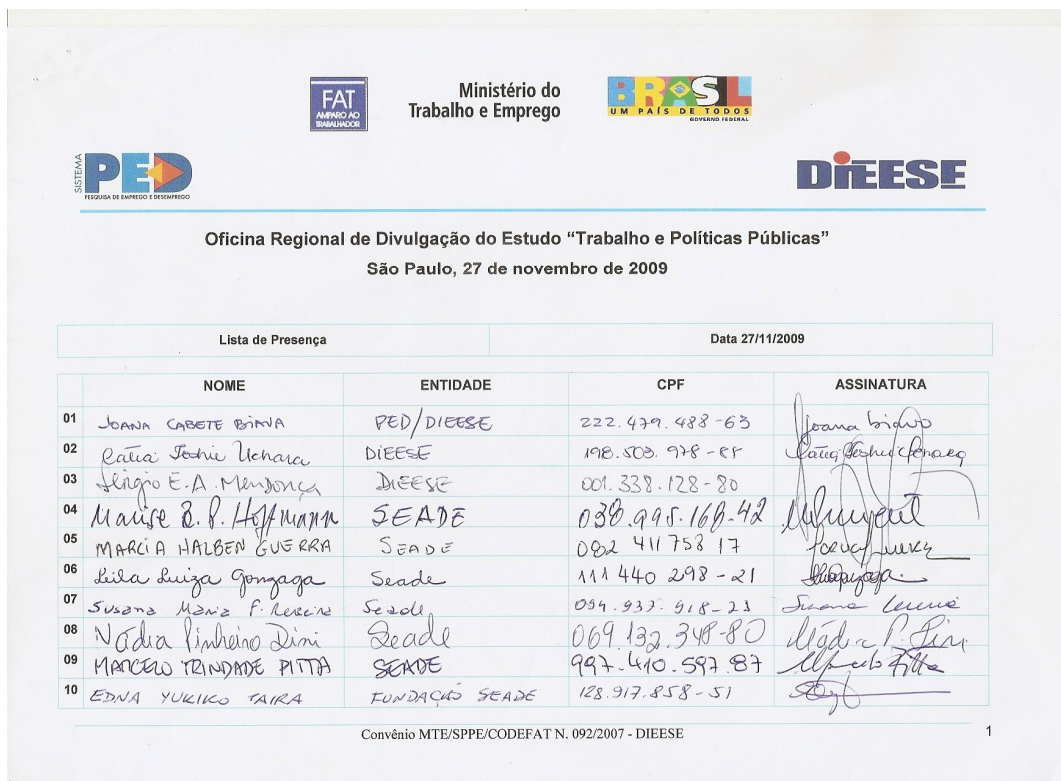 FAT
AMPARO AO
TRABALHADOR
Ministério do
Trabalho e Emprego
BRASIL
UM PAÍS DE TODOS
GOVERNO FEDERAL
SISTEMA
PED
PESQUISA DE EMPREGO E DESEMPREGO
DIEESE
Oficina Regional de Divulgação do Estudo “Trabalho e Políticas Públicas”
São Paulo, 27 de novembro de 2009
Lista de Presença Data 27/11/2009
NOME ENTIDADE CPF ASSINATURA
01 JOANA CABETE BIAVA PED/DIEESE 222.479.488-63 Joana Biava
02 Cátia Toshie Uehara DIEESE 198.503.978-88
03 Sérgio E.A. Mendonça DIEESE 001.338.128-80
04 Marise B. P. Hoffmann SEADE 038.995.168-42
05 MARCIA HALBEN GUERRA SEADE 082 411 758 17
06 Leila Luiza Gonzaga Seade 111 440 298-21
07 Susana Maria F. Pereira Seade 094.937.918-23
08 Nádia Pinheiro Dini Seade 069.132.348-80 Nádia P. Dini
09 MARCELO TRINDADE PITTA SEADE 997.410.597.87
10 EDNA YUKIKO TAIRA FUNDAÇÃO SEADE 128.917.858-51
Convênio MTE/SPPE/CODEFAT N. 092/2007 - DIEESE 1